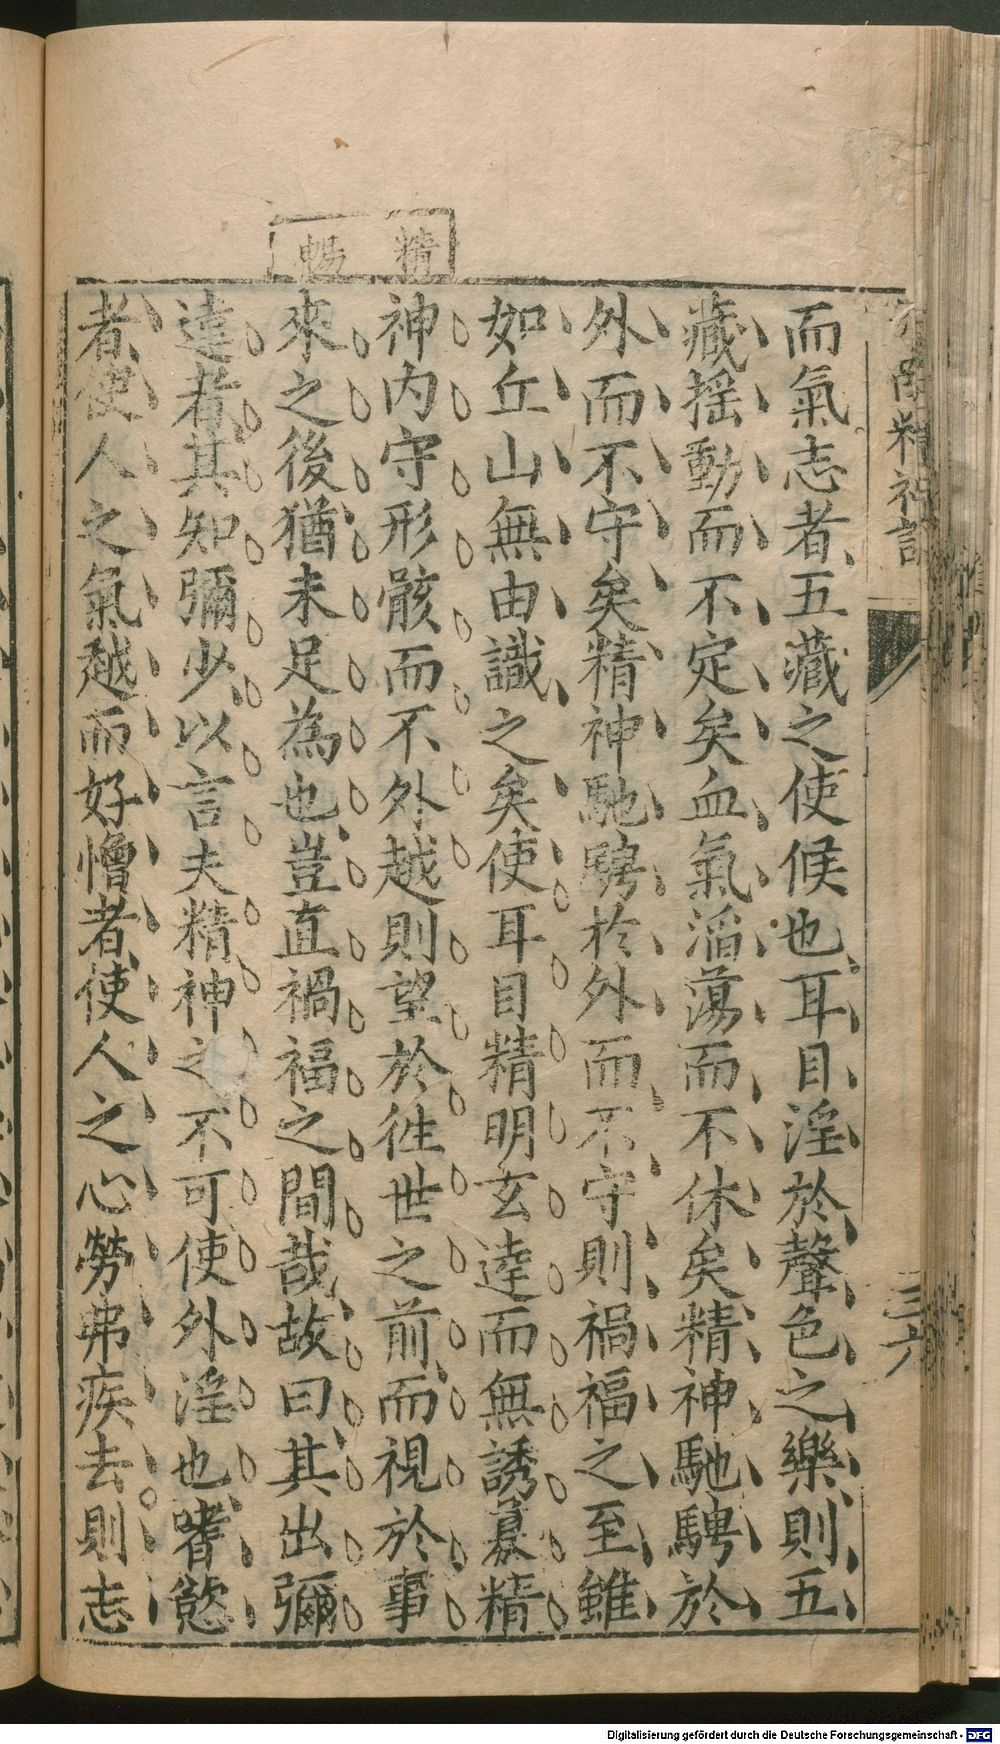 精暢
而氣志者五藏之使候也耳目淫於聲色之樂則五
藏搖動而不定矣血氣滔蕩而不休矣精神馳騁於
外而不守矣精神馳騁於外而不守則禍福之至雖
如丘山無由識之矣使耳目精明玄達而無誘慕精
神内守形骸而不外越則望於徃世之前而視於事
來之後猶未足為也豈直禍福之間哉故曰其出彌
遠者其知彌少以言夫精神之不可使外淫也嗜慾
者使人之氣越而好憎者使人之心勞弗疾去則志
精神訓
三六
Digitalisierung gefördert durch die Deutsche Forschungsgemeinschaft - DFG